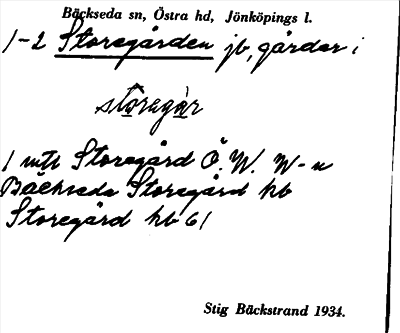 Bäckseda sn, Östra hd, Jönköpings l.
1-2 Storegården jb, gårdar i
storegår
1 mtl Storegård Ö. W. W-n
Bäckseda Storegård hb
Storegård hb 61
Stig Bäckstrand 1934.